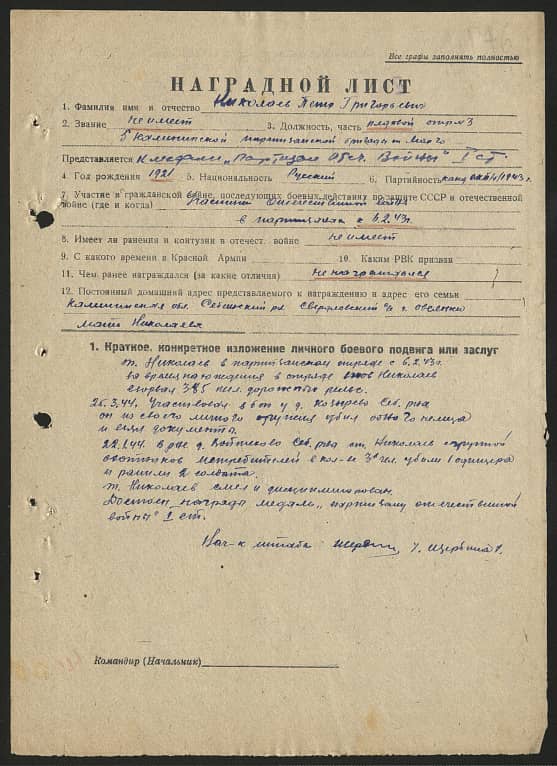 Все графы заполнять полностью
НАГРАДНОЙ ЛИСТ
1. Фамилия имя и отчество Николаев Петр Григорьевич
2. Звание не имеет 3. Должность, часть рядовой отр. №3
5 Калининской партизанской бригады
Представляется к медали "Партизан Отеч. Войны" I ст.
4. Год рождения 1921 5. Национальность Русский 6. Партийность канд. 1943 г.
7. Участие в гражданской войне, последующих боевых действиях по защите СССР и отечественной
войне (где и когда) Участник Отечественной войны
в партизанах с 6.2.43г.
8. Имеет ли ранения и контузии в отечест. войне не имеет
9. С какого времени в Красной Армии 10. Каким РВК призван
11. Чем ранее награждался (за какие отличия) не награждался
12. Постоянный домашний адрес представляемого к награждению и адрес его семьи
Калининская обл. Себежский р-н Свердловский с/с д. Овсянки
мать Николаева
1. Краткое, конкретное изложение личного боевого подвига или заслуг
т. Николаев в партизанском отряде с 6.2.43г.
за время нахождения в отряде Николаев
взорвал жел. дорожных рельс.
26.3.44. Участвовал в бою у д. Козырево Себ. р-на
он из своего личного оружия убил одного немца
и взял документы.
22.1.44. в р-не д. Себ. р-на т. Николаев с группой
истребителей в кол-ве 3х чел. убили 1 офицера
и ранили 2 солдата.
т. Николаев смел и дисциплинирован.
Достоин награды медаль "партизану отечественной
войны" I ст.
Нач-к штаба Щербина
Командир (Начальник)